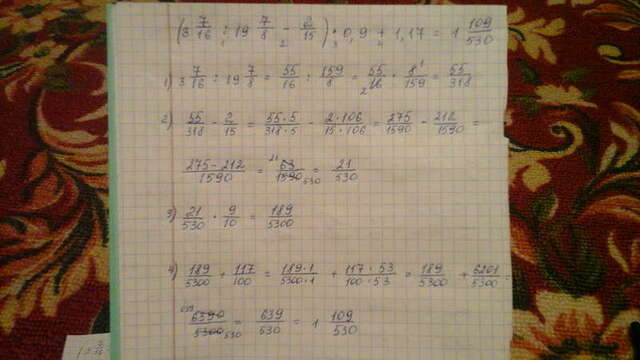 (3 7/16 : 19 7/8 - 2/15) · 0,9 + 1,17 = 1 109/530
1) 3 7/16 : 19 7/8 = 55/16 : 159/8 = 55/16 · 8/159 = 55/318
2) 55/318 - 2/15 = 55·5/318·5 - 2·106/15·106 = 275/1590 - 212/1590 =
275-212/1590 = 63/1590 = 21/530
3) 21/530 · 9/10 = 189/5300
4) 189/5300 + 117/100 = 189·1/5300·1 + 117·53/100·53 = 189/5300 + 6201/5300 =
6390/5300 = 639/530 = 1 109/530